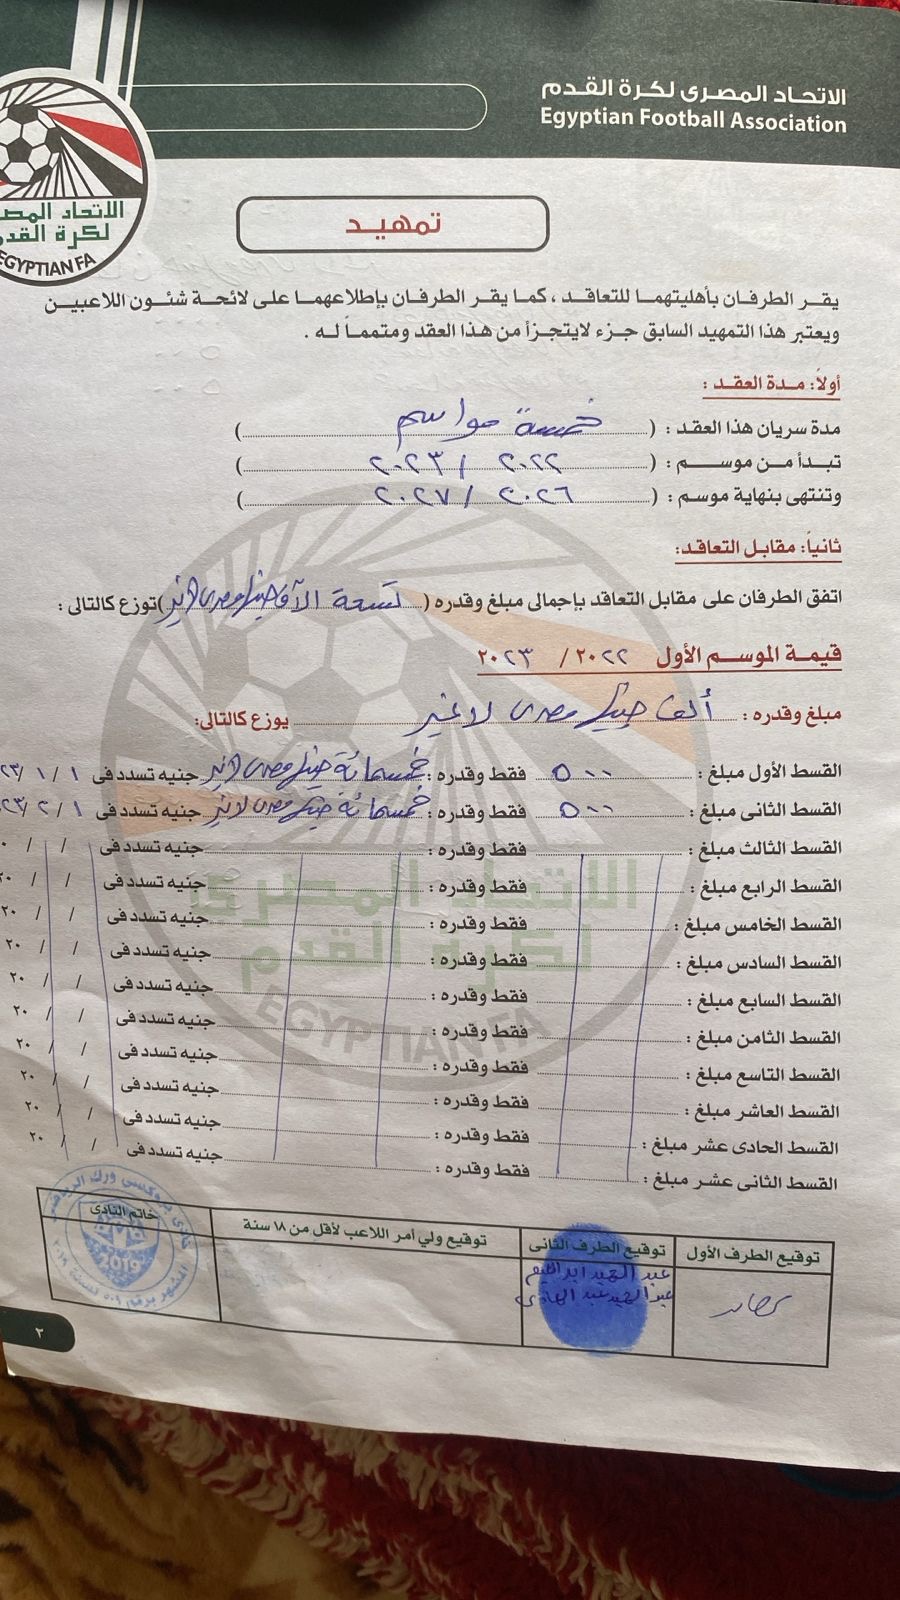 الاتحاد المصرى لكرة القدم
Egyptian Football Association
الاتحاد المصر
لكرة القدم
EGYPTIAN FA
تمهيد
يقر الطرفان بأهليتهما للتعاقد ، كما يقر الطرفان بإطلاعهما على لائحة شئون اللاعبين
ويعتبر هذا التمهيد السابق جزء لايتجزأ من هذا العقد ومتمماً له .
أولاً: مدة العقد :
مدة سريان هذا العقد : ( خمسة مواسم )
تبدأ من موسم : ( ٢٠٢٢ / ٢٠٢٣ )
وتنتهى بنهاية موسم : ( ٢٠٢٦ / ٢٠٢٧ )
ثانياً: مقابل التعاقد:
اتفق الطرفان على مقابل التعاقد بإجمالى مبلغ وقدره ( تسعة الآف جنيه مصرى لاغير ) توزع كالتالى :
قيمة الموسم الأول ٢٠٢٢ / ٢٠٢٣
مبلغ وقدره : ألف جنيه مصرى لاغير يوزع كالتالى:
القسط الأول مبلغ : ٥٠٠ فقط وقدره : خمسمائة جنيه مصرى لاغير جنيه تسدد فى ١ / ١ / ٢٣
القسط الثانى مبلغ : ٥٠٠ فقط وقدره : خمسمائة جنيه مصرى لاغير جنيه تسدد فى ١ / ٢ / ٢٣
القسط الثالث مبلغ : فقط وقدره : جنيه تسدد فى / / ٠
القسط الرابع مبلغ : فقط وقدره : جنيه تسدد فى / / ٢٠
القسط الخامس مبلغ : فقط وقدره : جنيه تسدد فى / / ٢٠
القسط السادس مبلغ : فقط وقدره : جنيه تسدد فى / / ٢٠
القسط السابع مبلغ : فقط وقدره : جنيه تسدد فى / / ٢٠
القسط الثامن مبلغ : فقط وقدره : جنيه تسدد فى / / ٢٠
القسط التاسع مبلغ : فقط وقدره : جنيه تسدد فى / / ٢٠
القسط العاشر مبلغ : فقط وقدره : جنيه تسدد فى / / ٢٠
القسط الحادى عشر مبلغ : فقط وقدره : جنيه تسدد فى / / ٢٠
القسط الثانى عشر مبلغ : فقط وقدره : جنيه تسدد فى / / ٢٠
الاتحاد المصرى
لكرة القدم
EGYPTIAN FA
توقيع الطرف الأول توقيع الطرف الثانى توقيع ولي أمر اللاعب لأقل من ١٨ سنة خاتم النادى
عبد الحميد ابراهيم
عبد الحميد عبد الهادى
2019
٢